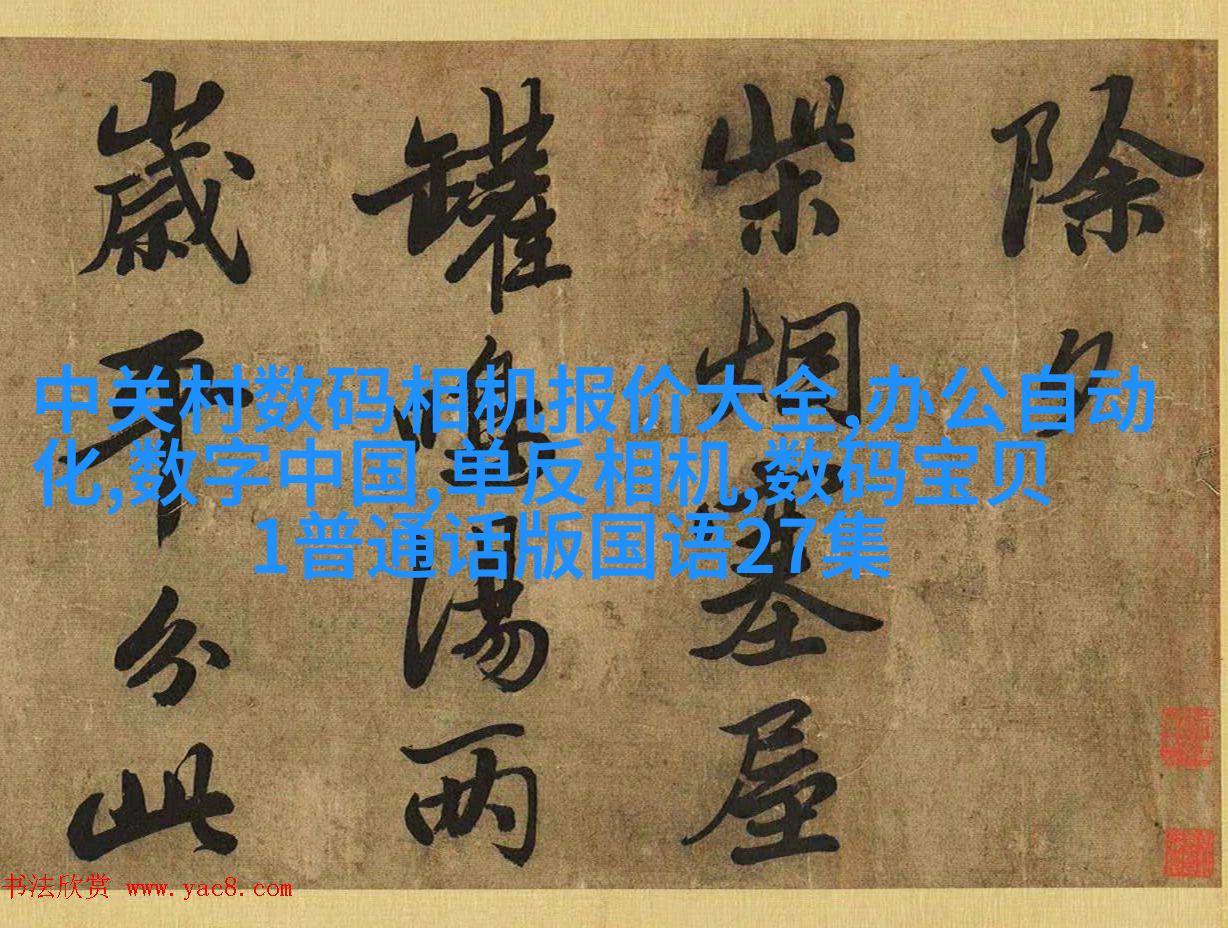 除夕
柴烟塞屋
罐鳴湯兩
歲平分此
中关村数码相机报价大全,办公自动
化,数字中国,单反相机,数码宝贝
1普通话版国语27集
书法欣赏 www.yac8.com